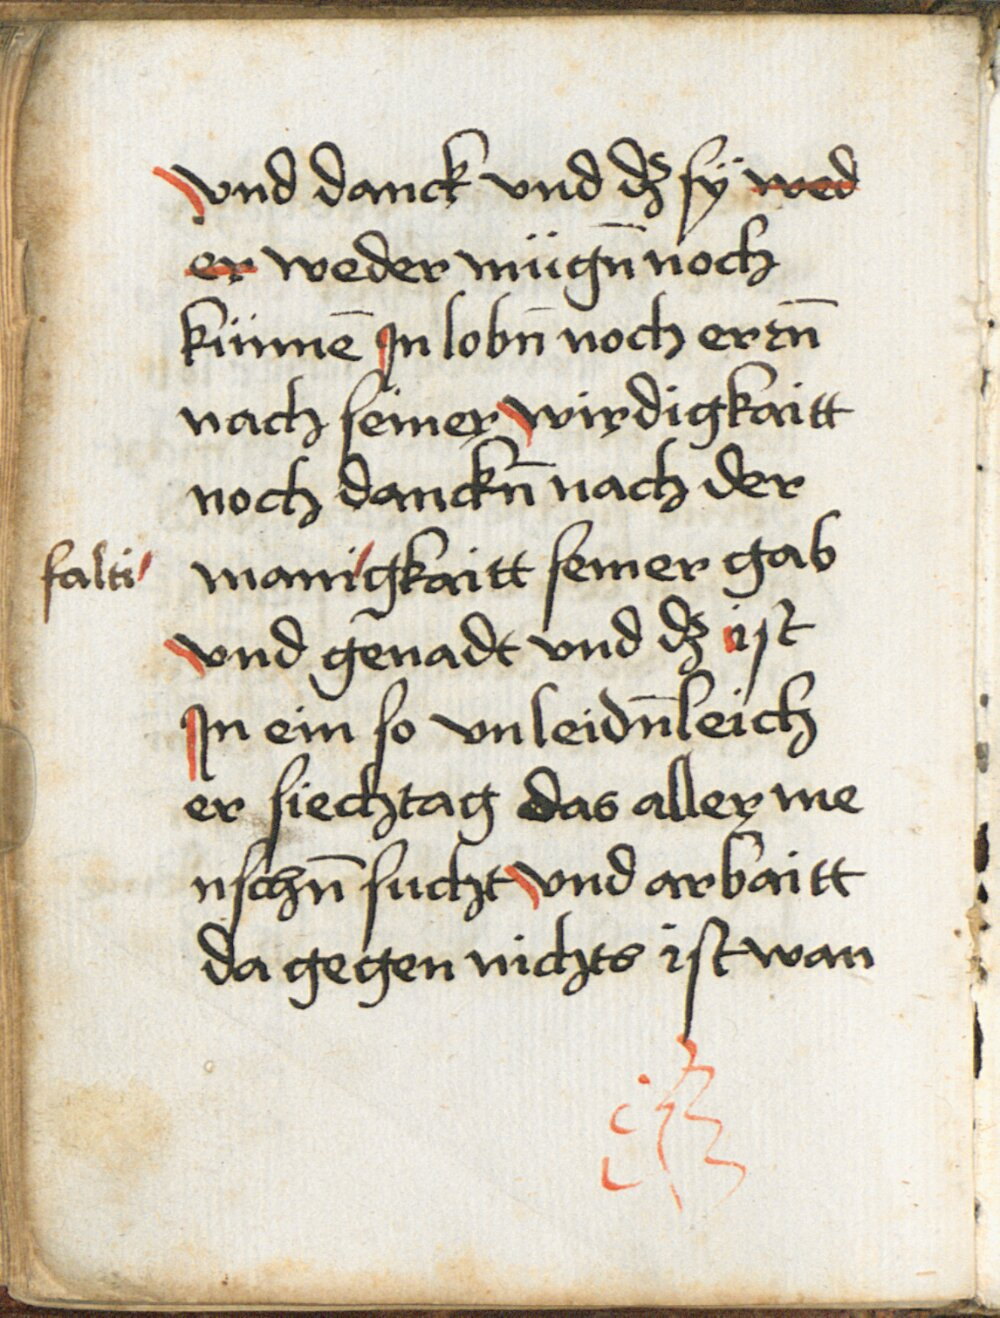 vnd danck vnd dz sÿ wed
er weder mügn̄ noch
künnē In lobn̄ noch ern̄
nach seiner wirdigkaitt
noch danckn̄ nach der
falti manigkaitt seiner gab
vnd genadt vnd dz ist
In ein so vnleidn̄leich
er siechtag das aller me
nschn̄ sucht vnd arbaitt
da gegen nichts ist wan